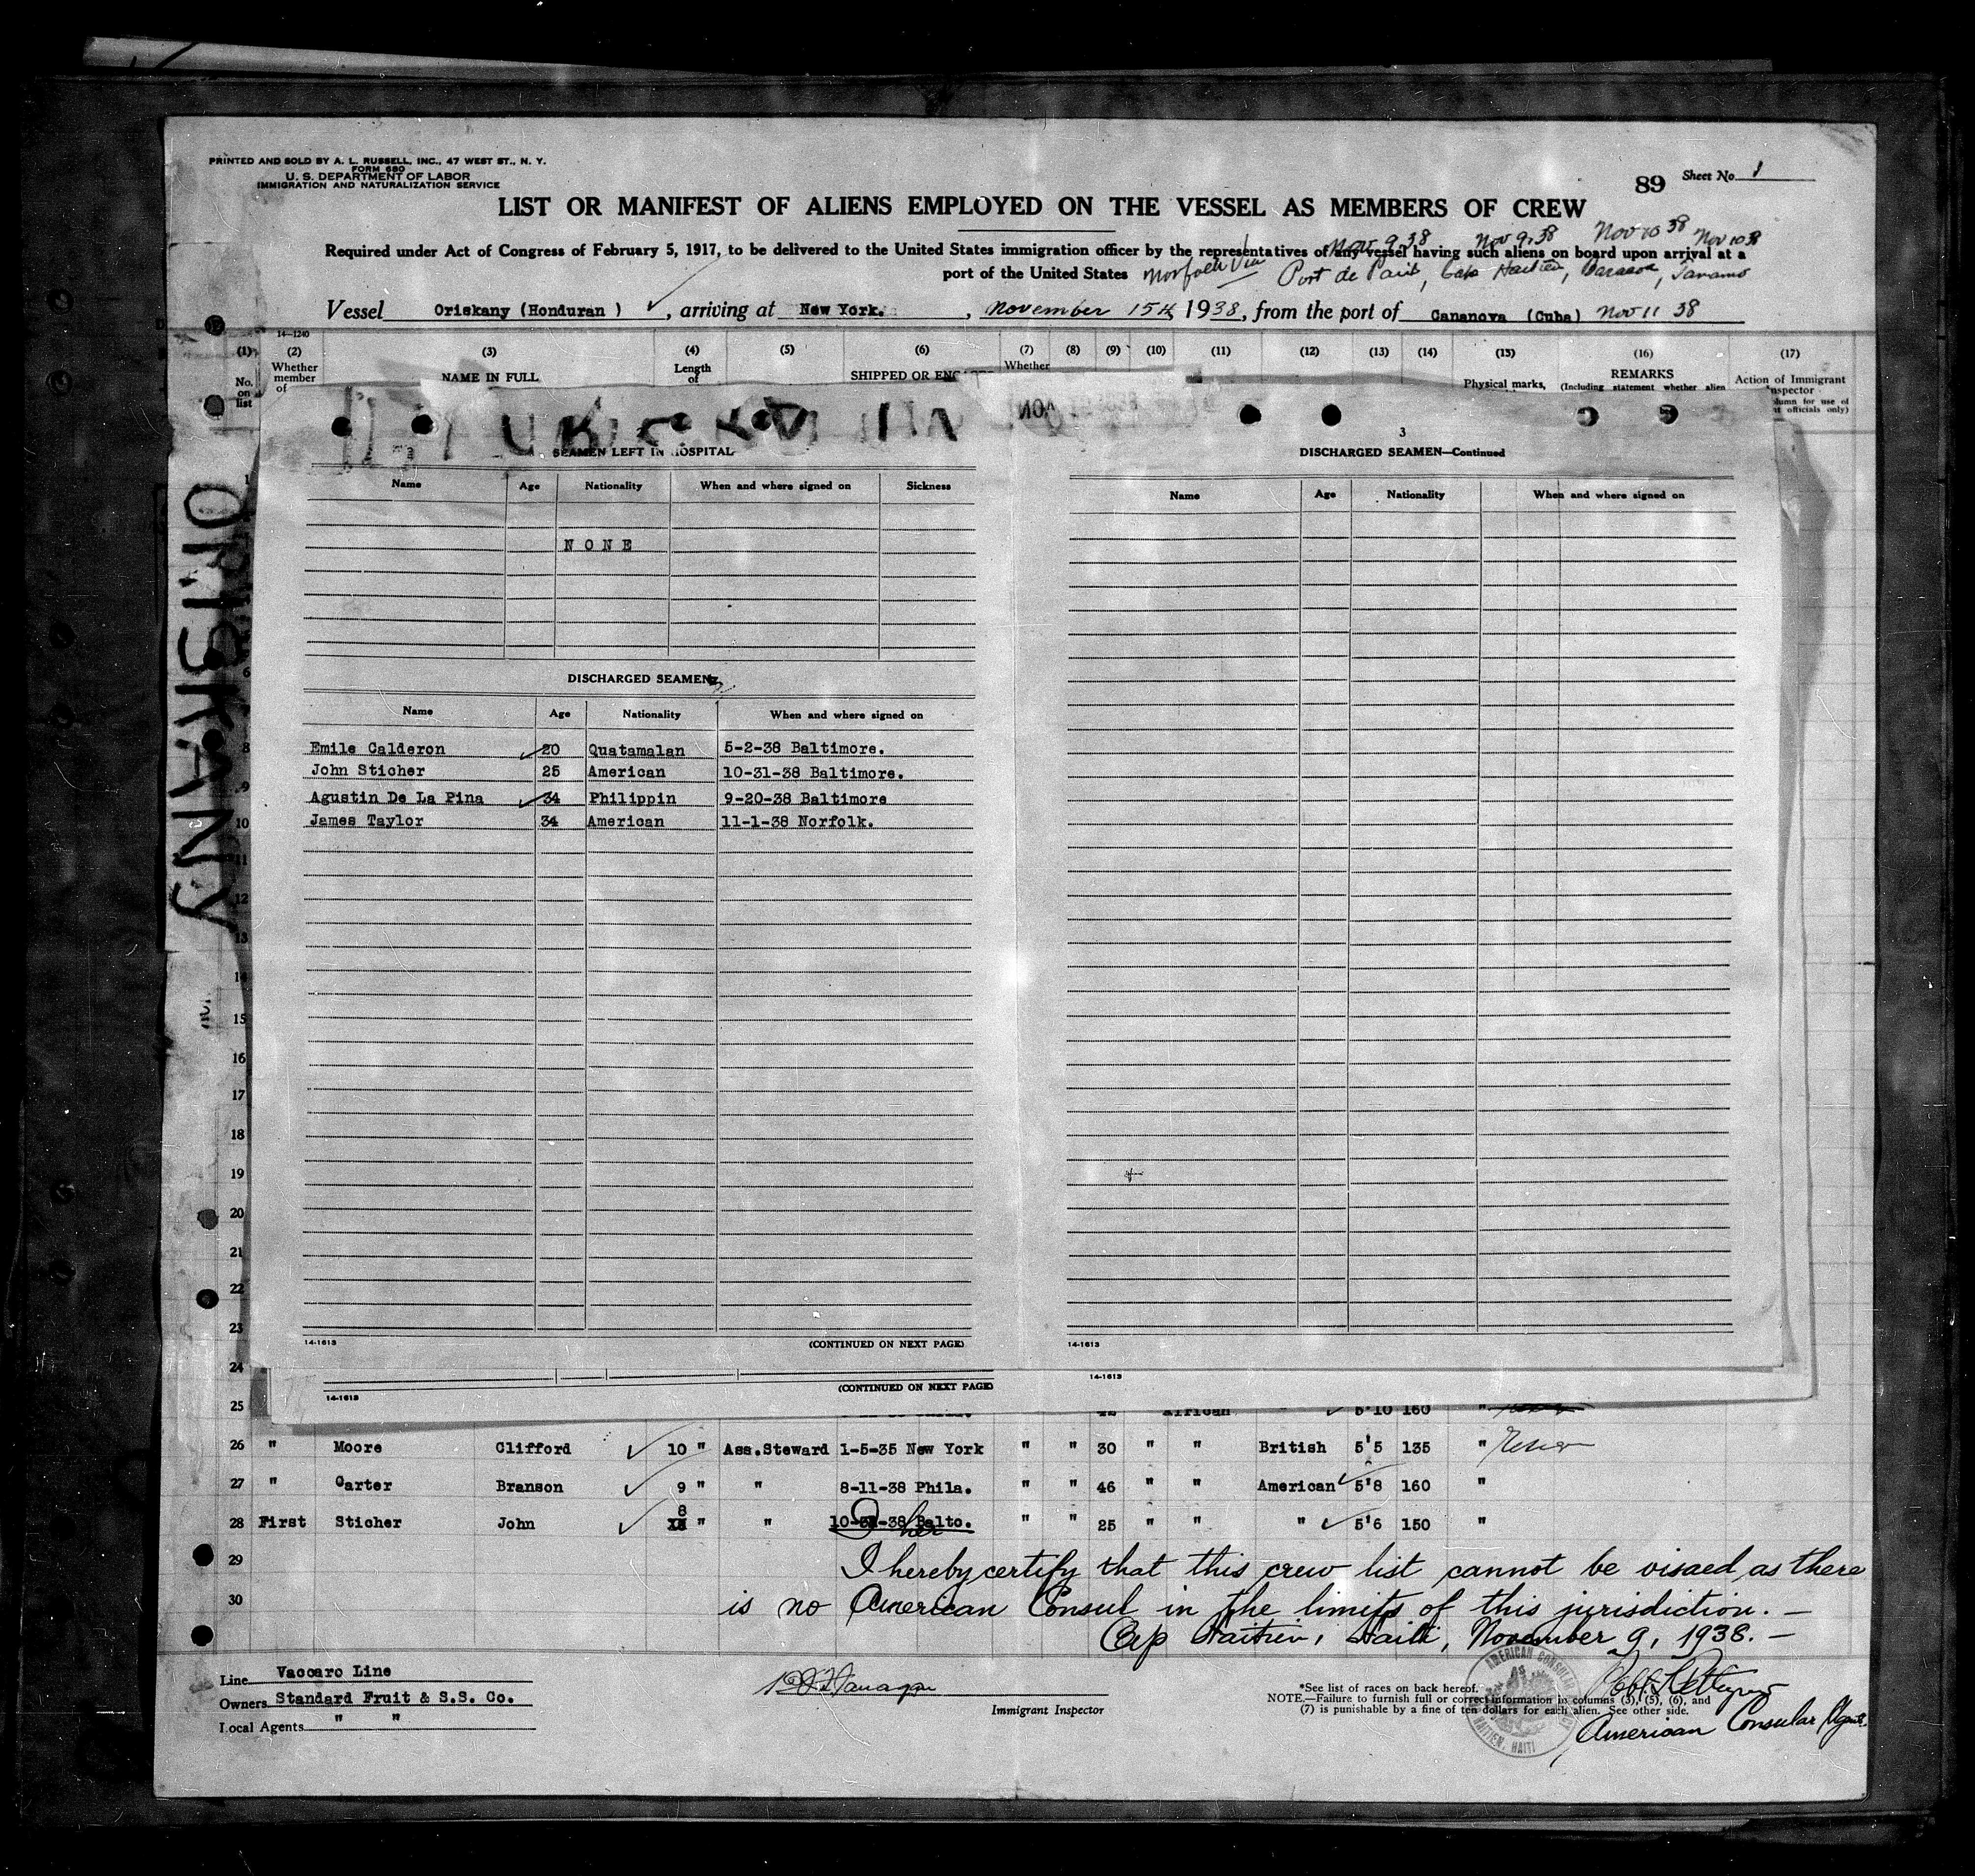 PRINTED AND SOLD BY A. L. RUSSELL, INC., 47 WEST ST., N. Y.
FORM 680
U. S. DEPARTMENT OF LABOR
IMMIGRATION AND NATURALIZATION SERVICE
89 Sheet No. 1
LIST OR MANIFEST OF ALIENS EMPLOYED ON THE VESSEL AS MEMBERS OF CREW
Nov 9.38 Nov 9.38 Nov 10 38 Nov 10 38
Required under Act of Congress of February 5, 1917, to be delivered to the United States immigration officer by the representatives of any vessel having such aliens on board upon arrival at a
port of the United States Norfolk Port de Paix, Haitien, Tanamo
Vessel Oriskany (Honduran ) , arriving at New York. , November 15th 1938, from the port of Cananova (Cuba) Nov 11 38
14-1240
(1) (2) (3) (4) (5) (6) (7) (8) (9) (10) (11) (12) (13) (14) (15) (16) (17)
No. on list
Whether member of
NAME IN FULL
Length of
SHIPPED OR
Whether
Physical marks,
REMARKS
(Including statement whether alien
Action of Immigrant
Inspector
officials only)
ORISKANY
SEAMEN LEFT IN HOSPITAL
Name Age Nationality When and where signed on Sickness
NONE
DISCHARGED SEAMEN
Name Age Nationality When and where signed on
Emile Calderon 20 Quatamalan 5-2-38 Baltimore.
John Sticher 25 American 10-31-38 Baltimore.
Agustin De La Pina 34 Philippin 9-20-38 Baltimore
James Taylor 34 American 11-1-38 Norfolk.
14-1613 (CONTINUED ON NEXT PAGE)
3
DISCHARGED SEAMEN—Continued
Name Age Nationality When and where signed on
14-1613
14-1613 (CONTINUED ON NEXT PAGE)
14-1613
6
8
9
10
11
12
13
14
15
16
17
18
19
20
21
22
23
24
25 African 5'10 160 "
26 " Moore Clifford 10 " Ass.Steward 1-5-35 New York " " 30 " " British 5'5 135 "
27 " Carter Branson 9 " " 8-11-38 Phila. " " 46 " " American 5'8 160 "
28 First Sticher John 8 " " 10-31-38 Balto. " " 25 " " " 5'6 150 "
29 I hereby certify that this crew list cannot be visaed as there
30 is no American Consul in the limits of this jurisdiction. —
Cap Haitien, Haiti, November 9, 1938. —
Line Vaccaro Line
Owners Standard Fruit & S.S. Co.
Local Agents " "
Immigrant Inspector
*See list of races on back hereof.
NOTE.—Failure to furnish full or correct information in columns (3), (5), (6), and
(7) is punishable by a fine of ten dollars for each alien. See other side.
AMERICAN CONSULAR
HAITIEN, HAITI
American Consular Agent.